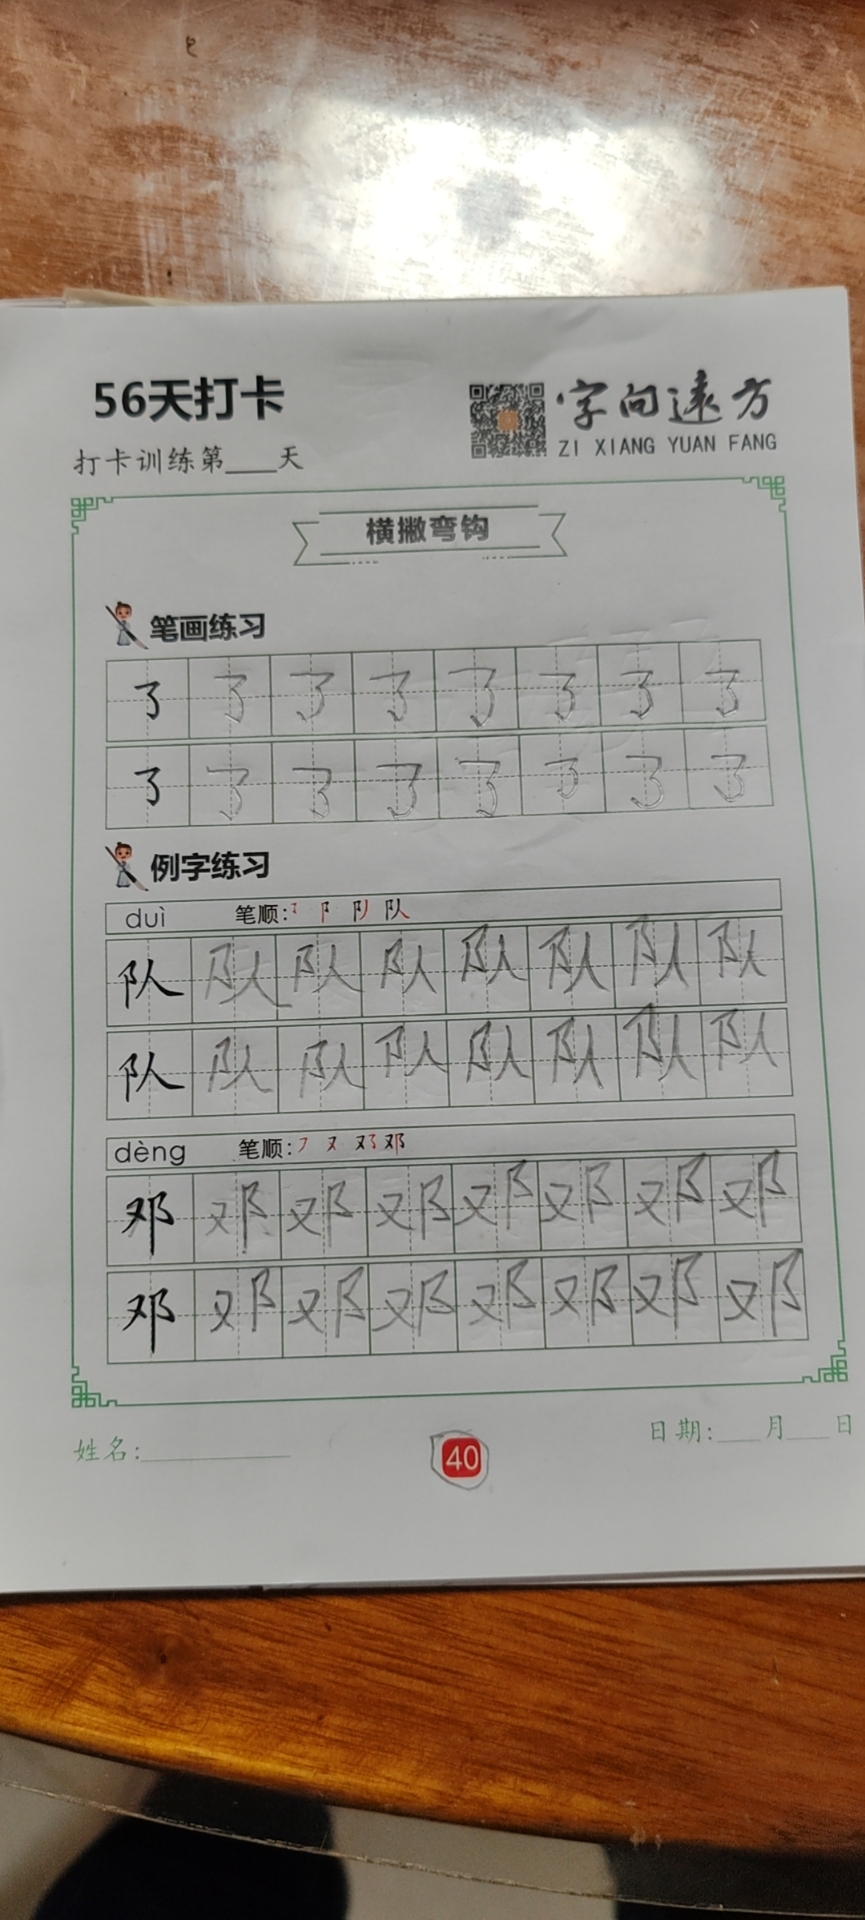 56天打卡
字向远方
ZI XIANG YUAN FANG
打卡训练第___天
横撇弯钩
笔画练习
㇌ ㇌ ㇌ ㇌ ㇌ ㇌ ㇌ ㇌
㇌ ㇌ ㇌ ㇌ ㇌ ㇌ ㇌ ㇌
例字练习
duì 笔顺: ㇌ 阝 队
队 队 队 队 队 队 队 队
队 队 队 队 队 队 队 队
dèng 笔顺: ㇇ 又 邓
邓 邓 邓 邓 邓 邓 邓 邓
邓 邓 邓 邓 邓 邓 邓 邓
姓名:___________
日期:___月___日
40